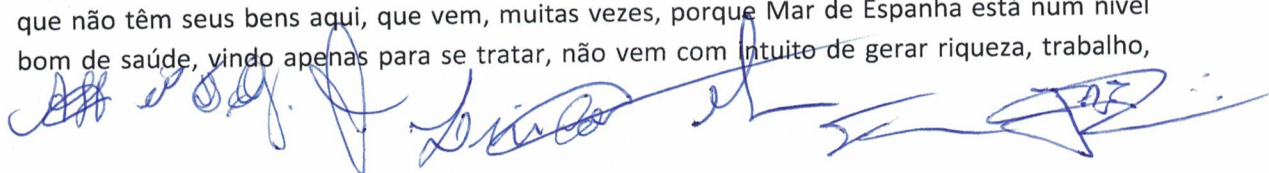 que não têm seus bens aqui, que vem, muitas vezes, porque Mar de Espanha está num nível
bom de saúde, vindo apenas para se tratar, não vem com intuito de gerar riqueza, trabalho,